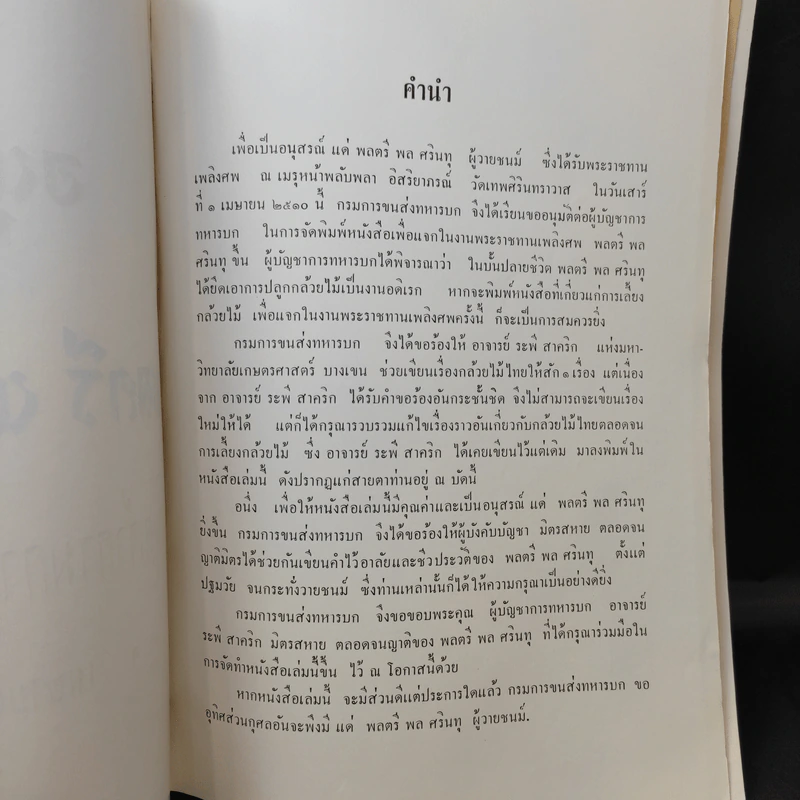 คำนำ
เพื่อเป็นอนุสรณ์ แด่ พลตรี พล ศรินทุ ผู้วายชนม์ ซึ่งได้รับพระราชทาน
เพลิงศพ ณ เมรุหน้าพลับพลา อิสริยาภรณ์ วัดเทพศิรินทราวาส ในวันเสาร์
ที่ ๑ เมษายน ๒๕๑๐ นี้ กรมการขนส่งทหารบก จึงได้เรียนขออนุมัติต่อผู้บัญชาการ
ทหารบก ในการจัดพิมพ์หนังสือเพื่อแจกในงานพระราชทานเพลิงศพ พลตรี พล
ศรินทุ ขึ้น ผู้บัญชาการทหารบกได้พิจารณาว่า ในบั้นปลายชีวิต พลตรี พล ศรินทุ
ได้ยึดเอาการปลูกกล้วยไม้เป็นงานอดิเรก หากจะพิมพ์หนังสือที่เกี่ยวแก่การเลี้ยง
กล้วยไม้ เพื่อแจกในงานพระราชทานเพลิงศพครั้งนี้ ก็จะเป็นการสมควรยิ่ง
กรมการขนส่งทหารบก จึงได้ขอร้องให้ อาจารย์ ระพี สาคริก แห่งมหา-
วิทยาลัยเกษตรศาสตร์ บางเขน ช่วยเขียนเรื่องกล้วยไม้ไทยให้สัก ๑ เรื่อง แต่เนื่อง
จาก อาจารย์ ระพี สาคริก ได้รับคำขอร้องอันกระชั้นชิด จึงไม่สามารถจะเขียนเรื่อง
ใหม่ให้ได้ แต่ก็ได้กรุณารวบรวมแก้ไขเรื่องราวอันเกี่ยวกับกล้วยไม้ไทยตลอดจน
การเลี้ยงกล้วยไม้ ซึ่ง อาจารย์ ระพี สาคริก ได้เคยเขียนไว้แต่เดิม มาลงพิมพ์ใน
หนังสือเล่มนี้ ดังปรากฏแก่สายตาท่านอยู่ ณ บัดนี้
อนึ่ง เพื่อให้หนังสือเล่มนี้มีคุณค่าและเป็นอนุสรณ์ แด่ พลตรี พล ศรินทุ
ยิ่งขึ้น กรมการขนส่งทหารบก จึงได้ขอร้องให้ผู้บังคับบัญชา มิตรสหาย ตลอดจน
ญาติมิตรได้ช่วยกันเขียนคำไว้อาลัยและชีวประวัติของ พลตรี พล ศรินทุ ตั้งแต่
ปฐมวัย จนกระทั่งวายชนม์ ซึ่งท่านเหล่านั้นก็ได้ให้ความกรุณาเป็นอย่างดียิ่ง
กรมการขนส่งทหารบก จึงขอขอบพระคุณ ผู้บัญชาการทหารบก อาจารย์
ระพี สาคริก มิตรสหาย ตลอดจนญาติของ พลตรี พล ศรินทุ ที่ได้กรุณาร่วมมือใน
การจัดทำหนังสือเล่มนี้ขึ้น ไว้ ณ โอกาสนี้ด้วย
หากหนังสือเล่มนี้ จะมีส่วนดีแต่ประการใดแล้ว กรมการขนส่งทหารบก ขอ
อุทิศส่วนกุศลอันจะพึงมี แด่ พลตรี พล ศรินทุ ผู้วายชนม์.